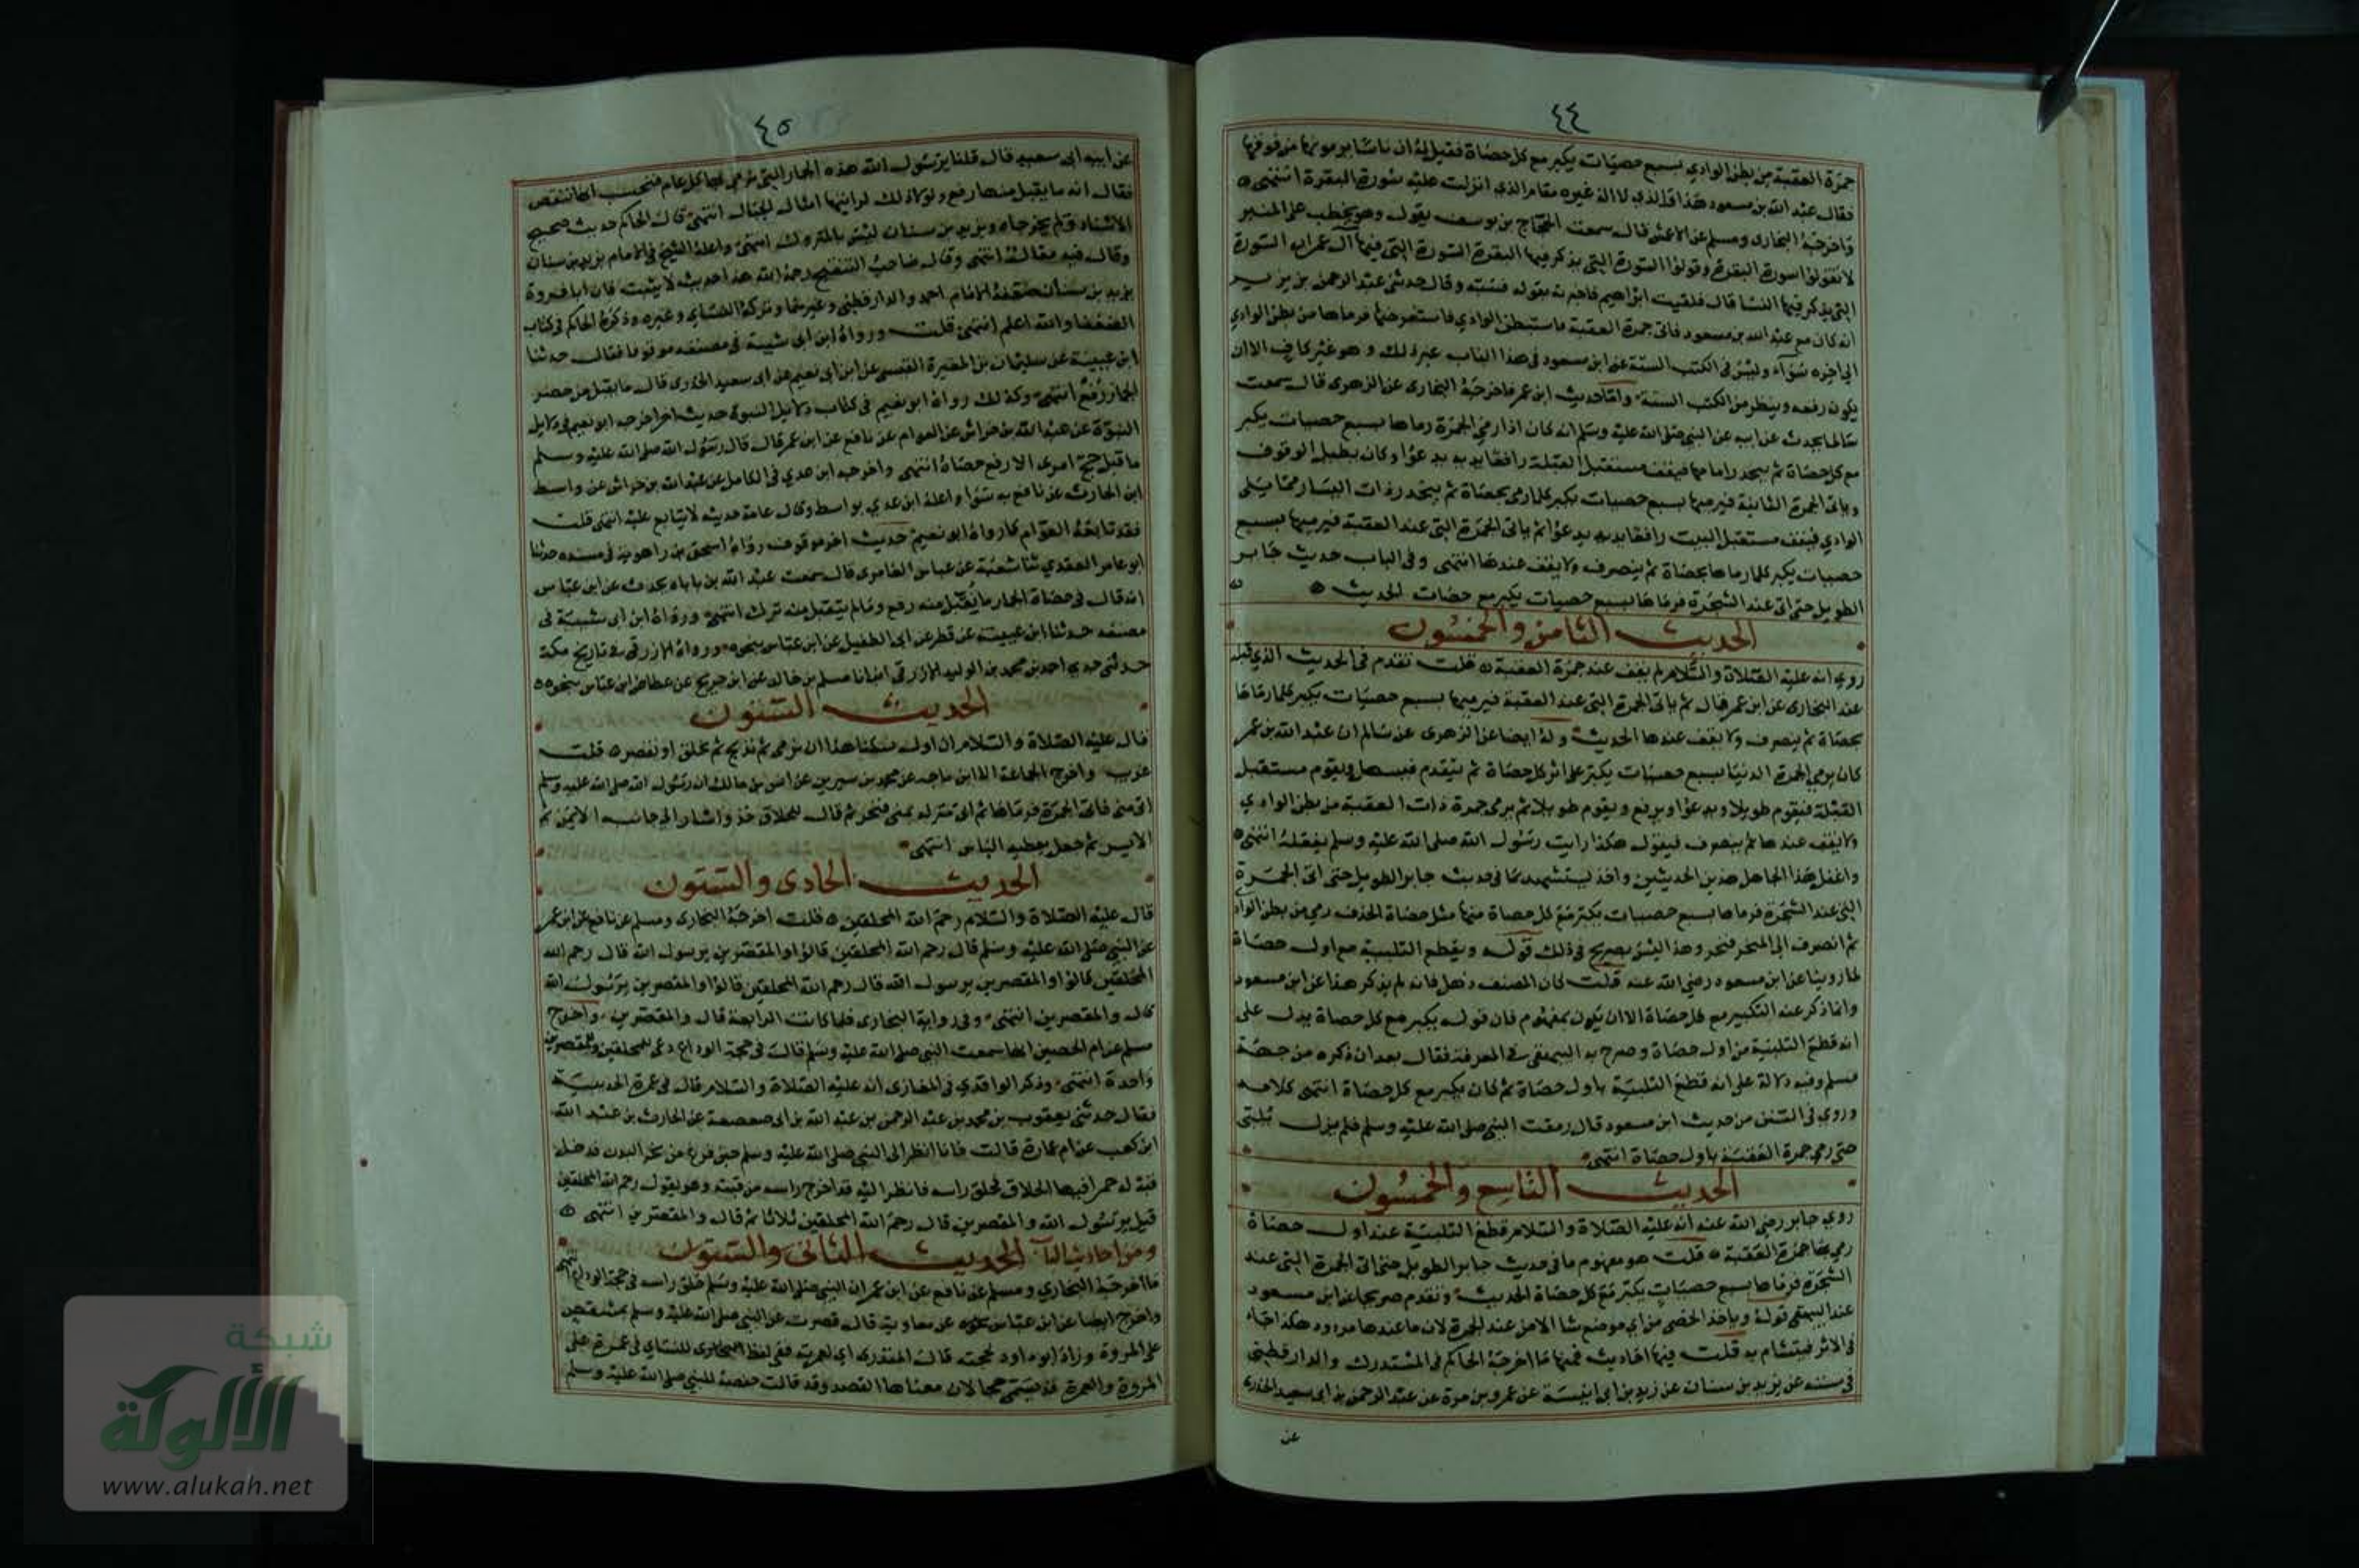 ٤٤
جمرة العقبة من بطن الوادي بسبع حصيات يكبر مع كل حصاة فقيل له ان ناسا يرمونها من فوقها
فقال عبد الله بن مسعود هذا والذي لا اله غيره مقام الذي انزلت عليه سورة البقرة انتهى
واخرجه البخاري ومسلم عن الاعمش قال سمعت الحجاج بن يوسف يقول وهو يخطب على المنبر
لا تقولوا سورة البقرة وقولوا السورة التي يذكر فيها البقرة السورة التي فيها آل عمران السورة
التي يذكر فيها النسا قال فلقيت ابراهيم فاخبرته بقوله فسبه وقال حدثني عبد الرحمن بن يزيد
انه كان مع عبد الله بن مسعود فاتى جمرة العقبة فاستبطن الوادي فاستعرضها فرماها من بطن الوادي
الى اخره سواء وليس في الكتب الستة عن ابن مسعود في هذا الباب غير ذلك و هو غير كاف الا ان
يكون رفعه وينظر من الكتب الستة واما حديث ابن عمر فاخرجه البخاري عن الزهري قال سمعت
سالما يحدث عن ابيه عن النبي صلى الله عليه وسلم انه كان اذا رمى الجمرة رماها بسبع حصيات يكبر
مع كل حصاة ثم ينحدر امامها فيقف مستقبل القبلة رافعا يديه يدعوا وكان يطيل الوقوف
وياتي الجمرة الثانية فيرميها بسبع حصيات يكبر كلما رمى بحصاة ثم ينحدر ذات اليسار مما يلى
الوادي فيقف مستقبل البيت رافعا يديه يدعوا ثم ياتي الجمرة التي عند العقبة فيرميها بسبع
حصيات يكبر كلما رماها بحصاة ثم ينصرف ولا يقف عندها انتهى وفي الباب حديث جابر
الطويل حتى اتى عند الشجرة فرماها بسبع حصيات يكبر مع حصات الحديث
الحديث الثامن والخمسون
روي انه عليه الصلاة والسلام لم يقف عند جمرة العقبة قلت تقدم في الحديث الذي قبله
عند البخاري عن ابن عمر قال ثم ياتي الجمرة التي عند العقبة فيرميها بسبع حصيات يكبر كلما رماها
بحصاة ثم ينصرف ولا يقف عندها الحديث وله ايضا عن الزهري عن سالم ان عبد الله بن عمر
كان يرمي الجمرة الدنيا بسبع حصيات يكبر على اثر كل حصاة ثم يتقدم فيسهل ويقوم مستقبل
القبلة فيقوم طويلا ويدعوا ويرفع ويقوم طويلا ثم يرمي جمرة ذات العقبة من بطن الوادي
ولا يقف عندها ثم ينصرف فيقول هكذا رايت رسول الله صلى الله عليه وسلم يفعله انتهى
واغفل هذا الجاهل هذين الحديثين واخذ يستشهد بما في حديث جابر الطويل حتى اتى الجمرة
التي عند الشجرة فرماها بسبع حصيات يكبر مع كل حصاة منها مثل حصاة الخذف رمي من بطن الوادي
ثم انصرف الى المنحر فنحر وهذا ليس بصريح في ذلك قوله ويقطع التلبية مع اول حصاة
لما روينا عن ابن مسعود رضي الله عنه قلت كان المصنف ذهل فانه لم يذكر هذا عن ابن مسعود
وانما ذكر عنه التكبير مع كل حصاة الا ان يكون بمفهوم فان قوله يكبر مع كل حصاة يدل على
انه قطع التلبية من اول حصاة وصرح به البيهقي في المعرفة فقال بعد ان ذكره من جهة
مسلم وفيه دلالة على انه قطع التلبية باول حصاة ثم كان يكبر مع كل حصاة انتهى كلامه
وروى في السنن من حديث ابن مسعود قال رمقت النبي صلى الله عليه وسلم فلم يزل يلبي
حتى رمى جمرة العقبة باول حصاة انتهى
الحديث التاسع والخمسون
روى جابر رضي الله عنه انه عليه الصلاة والسلام قطع التلبية عند اول حصاة
رمي بها جمرة العقبة قلت هو مفهوم ما في حديث جابر الطويل حتى اتى الجمرة التي عند
الشجرة فرماها بسبع حصيات يكبر مع كل حصاة الحديث وتقدم صريحا عن ابن مسعود
عند البيهقي قوله وياخذ الحصى من اي موضع شا الا من عند الجمرة لان ما عندها مردود هكذا جاء
في الاثر فيتشام به قلت فيها احاديث فمنها ما اخرجه الحاكم في المستدرك والدارقطني
في سننه عن يزيد بن سنان عن زيد بن ابي انيسة عن عمرو بن مرة عن عبد الرحمن بن ابي سعيد الخدري
عن
٤٥
عن ابيه ابي سعيد قال قلنا يرسول الله هذه الجمار التي نرمي بها كل عام فنحسب انها تنقص
فقال انه ما يقبل منها رفع ولولا ذلك لرايتها امثال الجبال انتهى قال الحاكم حديث صحيح
الاسناد ولم يخرجاه ويزيد بن سنان ليس بالمتروك انتهى واعله الشيخ في الامام بيزيد بن سنان
وقال فيه مقال انتهى وقال صاحب التنقيح رحمه الله هذا حديث لا يثبت فان ابا فروة
يزيد بن سنان ضعفه الامام احمد والدارقطني وغيرهما وتركه النسائي وغيره وذكره الحاكم في كتاب
الضعفا والله اعلم انتهى قلت ورواه ابن ابي شيبة في مصنفه موقوفا فقال حدثنا
ابن عيينة عن سليمان بن المغيرة القيسي عن ابن ابي نعيم عن ابي سعيد الخدري قال ما يقبل من حصى
الجمار رفع انتهى وكذلك رواه ابو نعيم في كتاب دلايل النبوة حديث اخر اخرجه ابو نعيم في دلايل
النبوة عن عبد الله بن خراش عن العوام عن نافع عن ابن عمر قال قال رسول الله صلى الله عليه وسلم
ما قبل حج امرئ الا رفع حصاه انتهى واخرجه ابن عدي في الكامل عن عبد الله بن خراش عن واسط
ابن الحارث عن نافع به سواء واعله ابن عدي بواسط وقال عامة حديثه لا يتابع عليه انتهى قلت
فقد تابعه العوام كما رواه ابو نعيم حديث اخر موقوف رواه اسحق بن راهويه في مسنده حدثنا
ابو عامر العقدي ثنا شعبة عن عباس العامري قال سمعت عبد الله بن باباه يحدث عن ابن عباس
انه قال في حصاة الجمار ما يقبل منه رفع وما لم يتقبل منه ترك انتهى ورواه ابن ابي شيبة في
مصنفه حدثنا ابن عيينة عن فطر عن ابي الطفيل عن ابن عباس بنحوه ورواه الازرقي في تاريخ مكة
حدثني جدي احمد بن محمد بن الوليد الازرقي انبانا مسلم بن خالد عن ابن جريج عن عطا عن ابن عباس بنحوه
الحديث الستون
قال عليه الصلاة والسلام ان اول نسكنا هذا ان نرمي ثم نذبح ثم نحلق او نقصر قلت
غريب واخرج الجماعة الا ابن ماجه عن محمد بن سيرين عن انس بن مالك ان رسول الله صلى الله عليه وسلم
اتى منى فاتى الجمرة فرماها ثم اتى منزله بمنى فنحر ثم قال للحلاق خذ واشار الى جانبه الايمن ثم
الايسر ثم جعل يعطيه الناس انتهى
الحديث الحادي والستون
قال عليه الصلاة والسلام رحم الله المحلقين قلت اخرجه البخاري ومسلم عن نافع عن ابن عمر
عن النبي صلى الله عليه وسلم قال رحم الله المحلقين قالوا والمقصرين يرسول الله قال رحم الله
المحلقين قالوا والمقصرين يرسول الله قال رحم الله المحلقين قالوا والمقصرين يرسول الله
قال والمقصرين انتهى وفي رواية البخاري فلما كانت الرابعة قال والمقصرين واخرج
مسلم عن ام الحصين انها سمعت النبي صلى الله عليه وسلم قالت في حجة الوداع دعى للمحلقين وللمقصرين
واحدة انتهى وذكر الواقدي في المغازي انه عليه الصلاة والسلام قال في عمرة الحديبية
فقال حدثني يعقوب بن محمد بن عبد الرحمن بن عبد الله بن ابي صعصعة عن الحارث بن عبد الله
ابن كعب عن ام عمارة قالت فانا انظر الى النبي صلى الله عليه وسلم حين فرغ من نحر البدن فدخل
قبة له حمرا فيها الحلاق فحلق راسه فانظر اليه قد اخرج راسه من قبته وهو يقول رحم الله المحلقين
قيل يرسول الله والمقصرين قال رحم الله المحلقين ثلاثا ثم قال والمقصرين انتهى
ومن احاديث الباب الحديث الثاني والستون
ما اخرجه البخاري ومسلم عن نافع عن ابن عمر ان النبي صلى الله عليه وسلم حلق راسه في حجة الوداع انتهى
واخرج ايضا عن ابن عباس عن معاوية قال قصرت عن النبي صلى الله عليه وسلم بمشقص
على المروة وزاد ابو داود لحجته قال المنذري اي لعمرته ففي لفظ للنسائي في عمرة على
المروة والعمرة قد يسمى حجا لان معناها القصد وقد قالت حفصة للنبي صلى الله عليه وسلم
شبكة
الألوكة
www.alukah.net